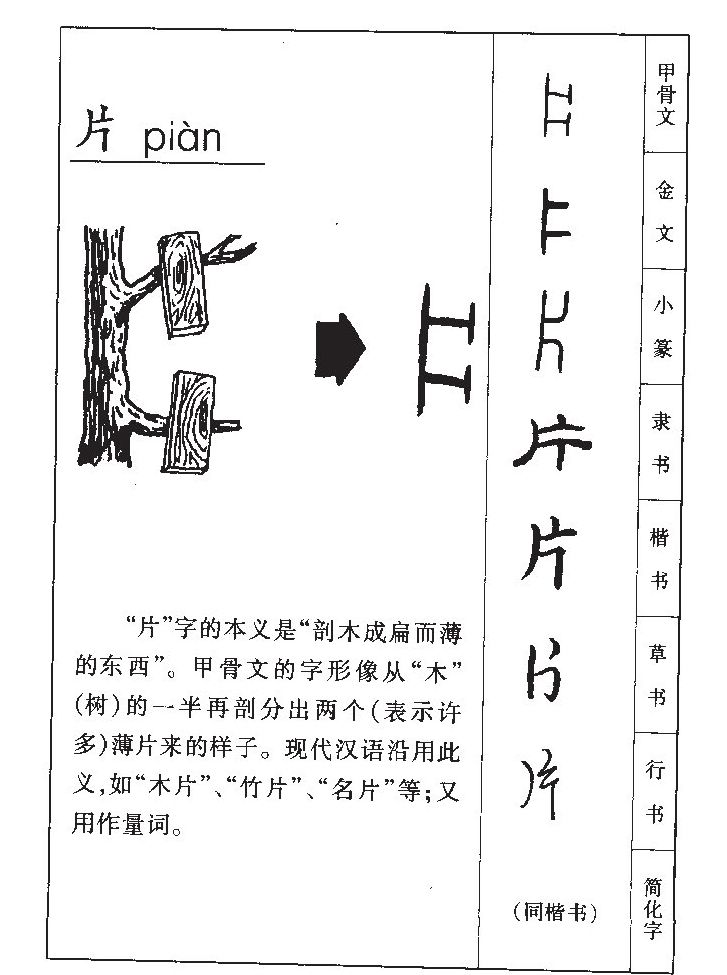 片 piàn
“片”字的本义是“剖木成扁而薄
的东西”。甲骨文的字形像从“木”
(树)的一半再剖分出两个(表示许
多)薄片来的样子。现代汉语沿用此
义,如“木片”、“竹片”、“名片”等;又
用作量词。
甲骨文
金文
小篆
隶书
片
楷书
片
草书
片
行书
片
简化字
(同楷书)